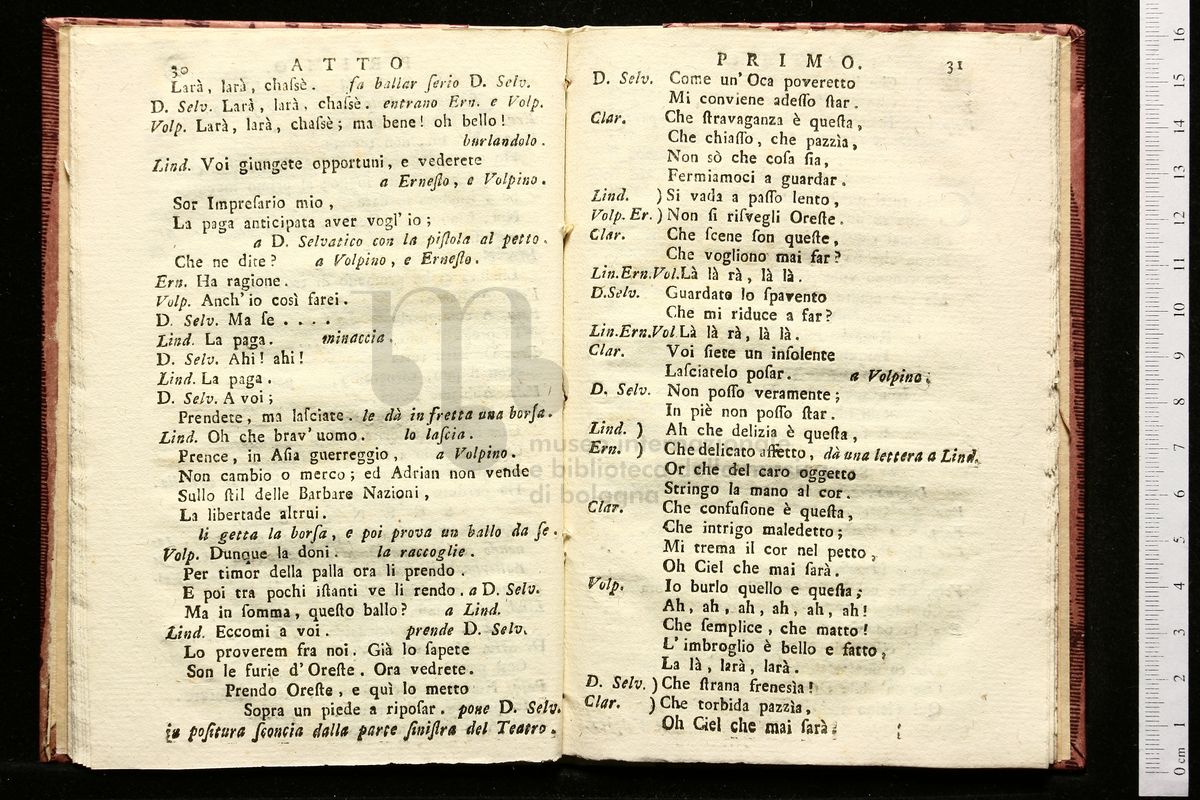 30 ATTO
Larà, larà, chaſsè. fa ballar ſerio D. Selv.
D. Selv. Larà, larà, chaſsè. entrano Ern. e Volp.
Volp. Larà, larà, chaſsè; ma bene! oh bello!
burlandolo.
Lind. Voi giungete opportuni, e vederete
a Erneſto, e Volpino.
Sor Impreſario mio,
La paga anticipata aver vogl' io;
a D. Selvatico con la piſtola al petto.
Che ne dite? a Volpino, e Erneſto.
Ern. Ha ragione.
Volp. Anch' io così farei.
D. Selv. Ma ſe . . . .
Lind. La paga. minaccia.
D. Selv. Ahi! ahi!
Lind. La paga.
D. Selv. A voi;
Prendete, ma laſciate. le dà in fretta una borſa.
Lind. Oh che brav' uomo. lo laſcia.
Prence, in Aſia guerreggio, a Volpino.
Non cambio o merco; ed Adrian non vende
Sullo ſtil delle Barbare Nazioni,
La libertade altrui.
li getta la borſa, e poi prova un ballo da ſe.
Volp. Dunque la doni. la raccoglie.
Per timor della palla ora li prendo.
E poi tra pochi iſtanti ve li rendo. a D. Selv.
Ma in ſomma, queſto ballo? a Lind.
Lind. Eccomi a voi. prende D. Selv.
Lo proverem fra noi. Già lo ſapete
Son le furie d' Oreſte. Ora vedrete.
Prendo Oreſte, e quì lo metto
Sopra un piede a ripoſar. pone D. Selv.
in poſitura ſconcia dalla parte ſiniſtra del Teatro.
PRIMO. 31
D. Selv. Come un' Oca poveretto
Mi conviene adeſſo ſtar.
Clar. Che ſtravaganza è queſta,
Che chiaſſo, che pazzìa,
Non sò che coſa ſia,
Fermiamoci a guardar.
Lind. ) Si vada a paſſo lento,
Volp. Er. ) Non ſi riſvegli Oreſte.
Clar. Che ſcene ſon queſte,
Che vogliono mai far?
Lin.Ern.Vol.Là là rà, là là.
D.Selv. Guardato lo ſpavento
Che mi riduce a far?
Lin.Ern.Vol Là là rà, là là.
Clar. Voi ſiete un inſolente
Laſciatelo poſar. a Volpino.
D. Selv. Non poſſo veramente;
In piè non poſſo ſtar.
Lind. ) Ah che delizia è queſta,
Ern. ) Che delicato affetto, dà una lettera a Lind.
Or che del caro oggetto
Stringo la mano al cor.
Clar. Che confuſione è queſta,
Che intrigo maledetto;
Mi trema il cor nel petto,
Oh Ciel che mai ſarà.
Volp. Io burlo quello e queſta;
Ah, ah, ah, ah, ah, ah!
Che ſemplice, che matto!
L' imbroglio è bello e fatto,
La là, larà, larà.
D. Selv. ) Che ſtrana freneſìa!
Clar. ) Che torbida pazzìa,
Oh Ciel che mai ſarà!
museo internazionale
e biblioteca della musica
di bologna
0 cm 1 2 3 4 5 6 7 8 9 10 11 12 13 14 15 16